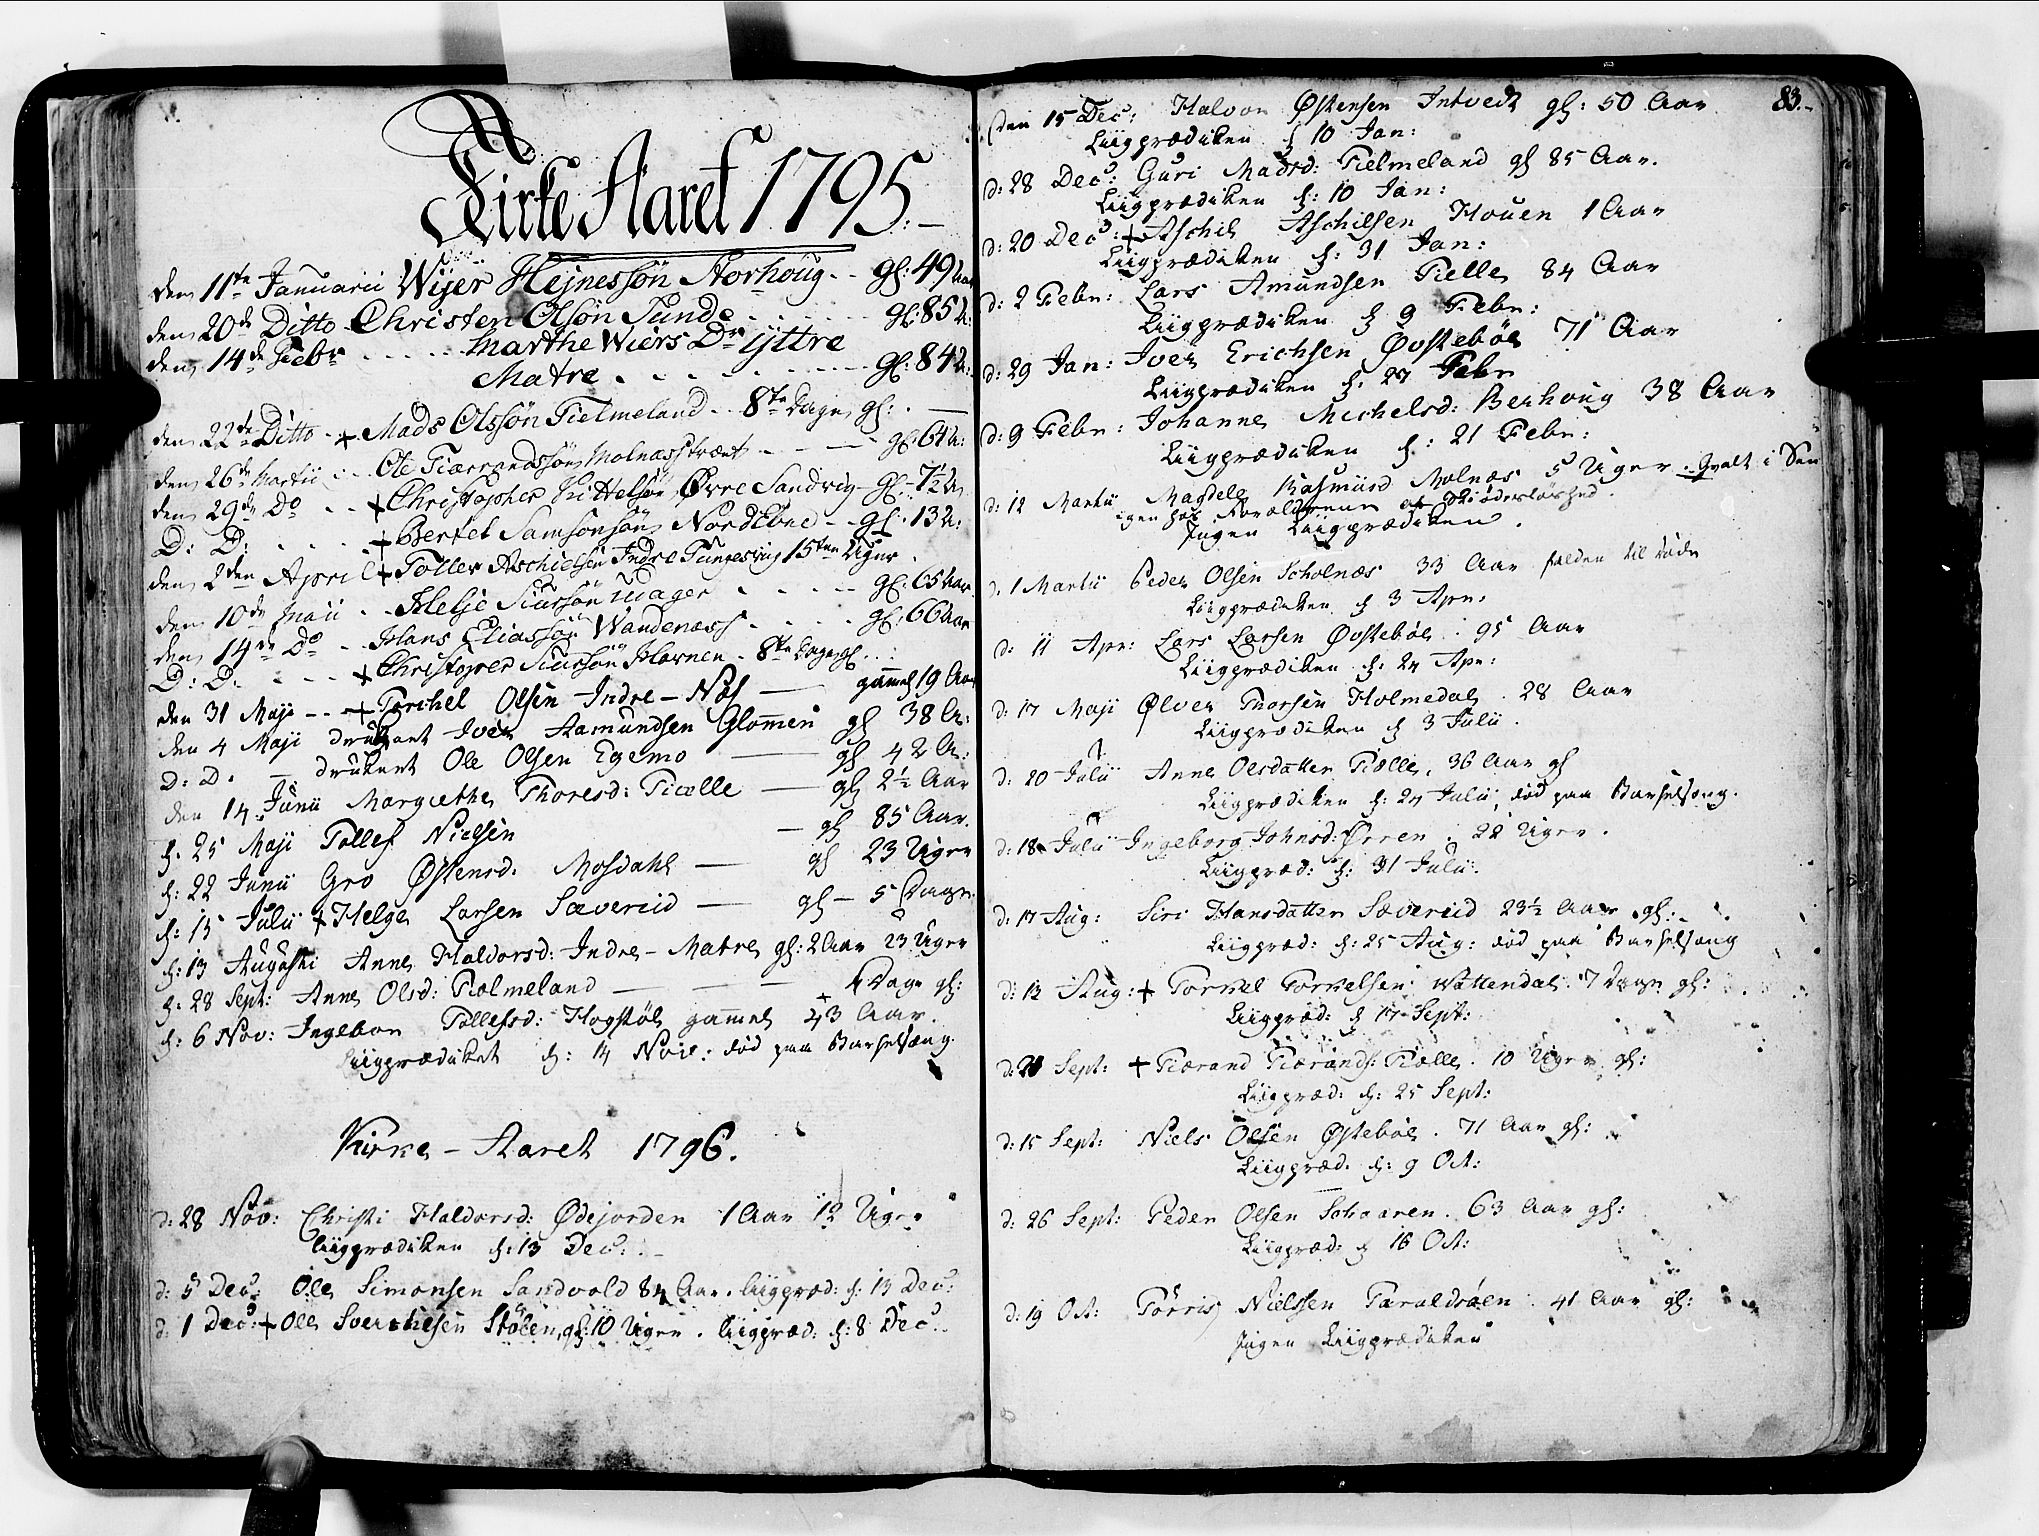 Kirke Aaret 1795.
den 11te Januarii Wijer Hejnessøn Norhoug - - gl: 49 Aar
den 20de Ditto Christen Olsøn Sunde - - - gl: 85 A:
den 14de Febr - - - Marthe Wiers Dr ÿttre
Matre. - - - gl: 84 A:
den 22de Ditto - + Mads Olssøn Fielmeland - - 8te Dage gl: -
den 26de Martii - - Ole Tiærrandssøn Molnæsstrænt - - - gl: 64 A:
den 29de Do - - + Christopher Kittelsøn Øvre Sandvig - gl: 7½ A
D: D: - - - + Bertel Samsonsøn Nordtbne - - gl: 13 A:
den 2den April + Tollev Aschielsøn Indre Tungesvig 15ten Uger
den 10de Maii - - Helje Siursøn Udager - - - gl: 65 Aar
den 14de Do - - Hans Eliassøn Wandenæss - - - gl: 66 Aar
D: D. - - - + Christopher Siursøn Hovnen - 8te Dage gl.
den 31 Maji - - + Torchel Olsen Indre - Nœs — gamel 19 Aar
den 4 Maji druknet Iver Aamundsen Glommen gl 38 A:
D: D. — druknet Ole Olsen Egemo — gl 42 A:
den 14 Junii Margrethe Thoresd: Tiælle — gl 2½ Aar
d: 25 Maji Tollef Nielsen — gl 85 Aar.
d: 22 Junii Gro Østensd. Mosdahl — gl 23 Uger
d: 15 Julii + Helge Larsen Sævereid — gl - 5 Dage
d: 13 Augusti Anne Haldorsd: Indre - Matre gl: 2 Aar 23 Uger
d: 28 Sept: Anne Olsd: Fiælmeland — — — 4 Dage gl:
d: 6 Nov: Ingebor Tollefsd: Hogstøl gammel 43 Aar.
Liigprædiket d: 14 Nov: død paa Barselsæng.
Kirke - Aaret 1796.
d: 28 Nov: Christi Haldorsd: Ødejorden 1 Aar 12 Uger
Liigprædiken d: 13 Dec:
d: 5 Dec: Ole Simonsen Sandvold 84 Aar. Liigpræd: d: 13 Dec:
d: 1 Dec: + Ole Sverchelsen Stølen, gl: 10 Uger. Liigpræd: d: 8 Dec.
83.
Den 15 Dec: Halvor Østensen Intvedt gl: 50 Aar
Liigprædiken d 10 Jan:
d: 28 Dec: Guri Madsd: Fielmeland gl 85 Aar.
Liigprædiken d: 10 Jan:
d: 20 Dec: + Aschil Aschilsen Houen 1 Aar
Liigprædiken d: 31 Jan:
d: 2 Febr: Lars Amundsen Tielle 84 Aar
Liigprædiken d 9 Febr:
d: 29 Jan: Iver Erichsen Øvstebøe 71 Aar
Liigprædiken d: 27 Febr
d: 9 Febr: Johanne Michelsd: Berhoug 38 Aar
Liigprædiken d: 21 Febr:
d: 12 Martii Magdele Rasmusd Molnæs 5 Uger. Qvalt i Sen
igen hos Forældrene af Skiødesløshed.
Ingen Liigprædiken.
d: 1 Martii Peder Olsen Scholnæs 33 Aar falden til døde
Liigprædiken d 3 Apr:
d: 11 Apr: Lars Larsen Øvstebøe. 95 Aar
Liigprædiken d: 24 Apr:
d: 17 Maji Ølver Thorsen Holmedal. 28 Aar
Liigprædiken d 3 Julii.
d: 20 Julii Anne Olsdatter Tiælle. 36 Aar gl
Liigprædiken d: 24 Julii, død paa Barselsæng.
d: 18 Julii Ingeborg Johnsd: Ørren. 22 Uger.
Liigpræd: d: 31 Julii.
d: 17 Aug: Siri Hansdatter Sævereid 23½ Aar gl:
Liigpræd: d: 25 Aug: død paa Barselsæng
d: 12 Aug: + Torkel Torkelsen Wattendal. 7 Dage gl:
Liigpræd: d 17 Sept:
d: 21 Sept: + Tiærand Tiærands: Tiælle. 10 Uger gl:
Liigpræd: d: 25 Sept:
d: 15 Sept: Niels Olsen Østebøe. 71 Aar gl:
Liigpræd. d: 9 Oct:
d: 26 Sept: Peder Olsen Schaaren. 63 Aar gl:
Liigpræd: d 16 Oct:
d: 19 Oct: Tørris Nielssen Taraldsøen. 41 Aar gl:
Ingen Liigprædiken